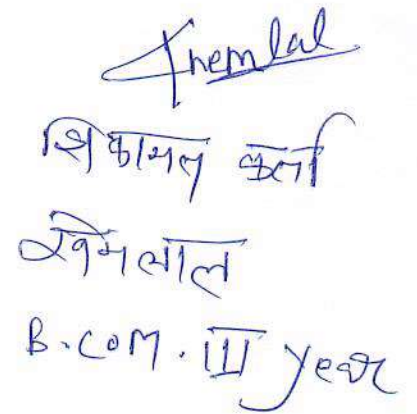 Khemlal
शिकायत कर्ता
खेमलाल
B.COM. III year